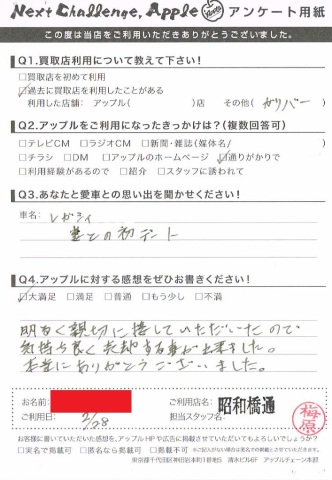 Next Challenge, Apple アンケート用紙
この度は当店をご利用いただきありがとうございました。
Q1.買取店利用について教えて下さい!
□買取店を初めて利用
☑過去に買取店を利用したことがある
利用した店舗： アップル( )店 その他( ガリバー )
Q2.アップルをご利用になったきっかけは?(複数回答可)
□テレビCM □ラジオCM □新聞・雑誌(媒体名/ )
□チラシ □DM □アップルのホームページ ☑通りがかりで
□利用経験があるので □紹介 □スタッフに誘われて
Q3.あなたと愛車との思い出を聞かせください!
車名： レガシィ
妻との初デート
Q4.アップルに対する感想をぜひお書きください!
☑大満足 □満足 □普通 □もう少し □不満
明るく親切に接していただいたので
気持ち良く売却する事が出来ました。
本当にありがとうございました。
お名前:
ご利用店名: 昭和橋通
ご利用日: 2/28
担当スタッフ名:
梅原
お客様に書いていただいた感想を、アップルHPや広告に掲載させていただいてもよろしいでしょうか?
□実名で掲載可 □匿名なら掲載可 □掲載不可
※ご記入がない場合は匿名での掲載とさせていただきます。
東京都千代田区神田冶本町1番地5 清水ビル6F アップルチェーン本部